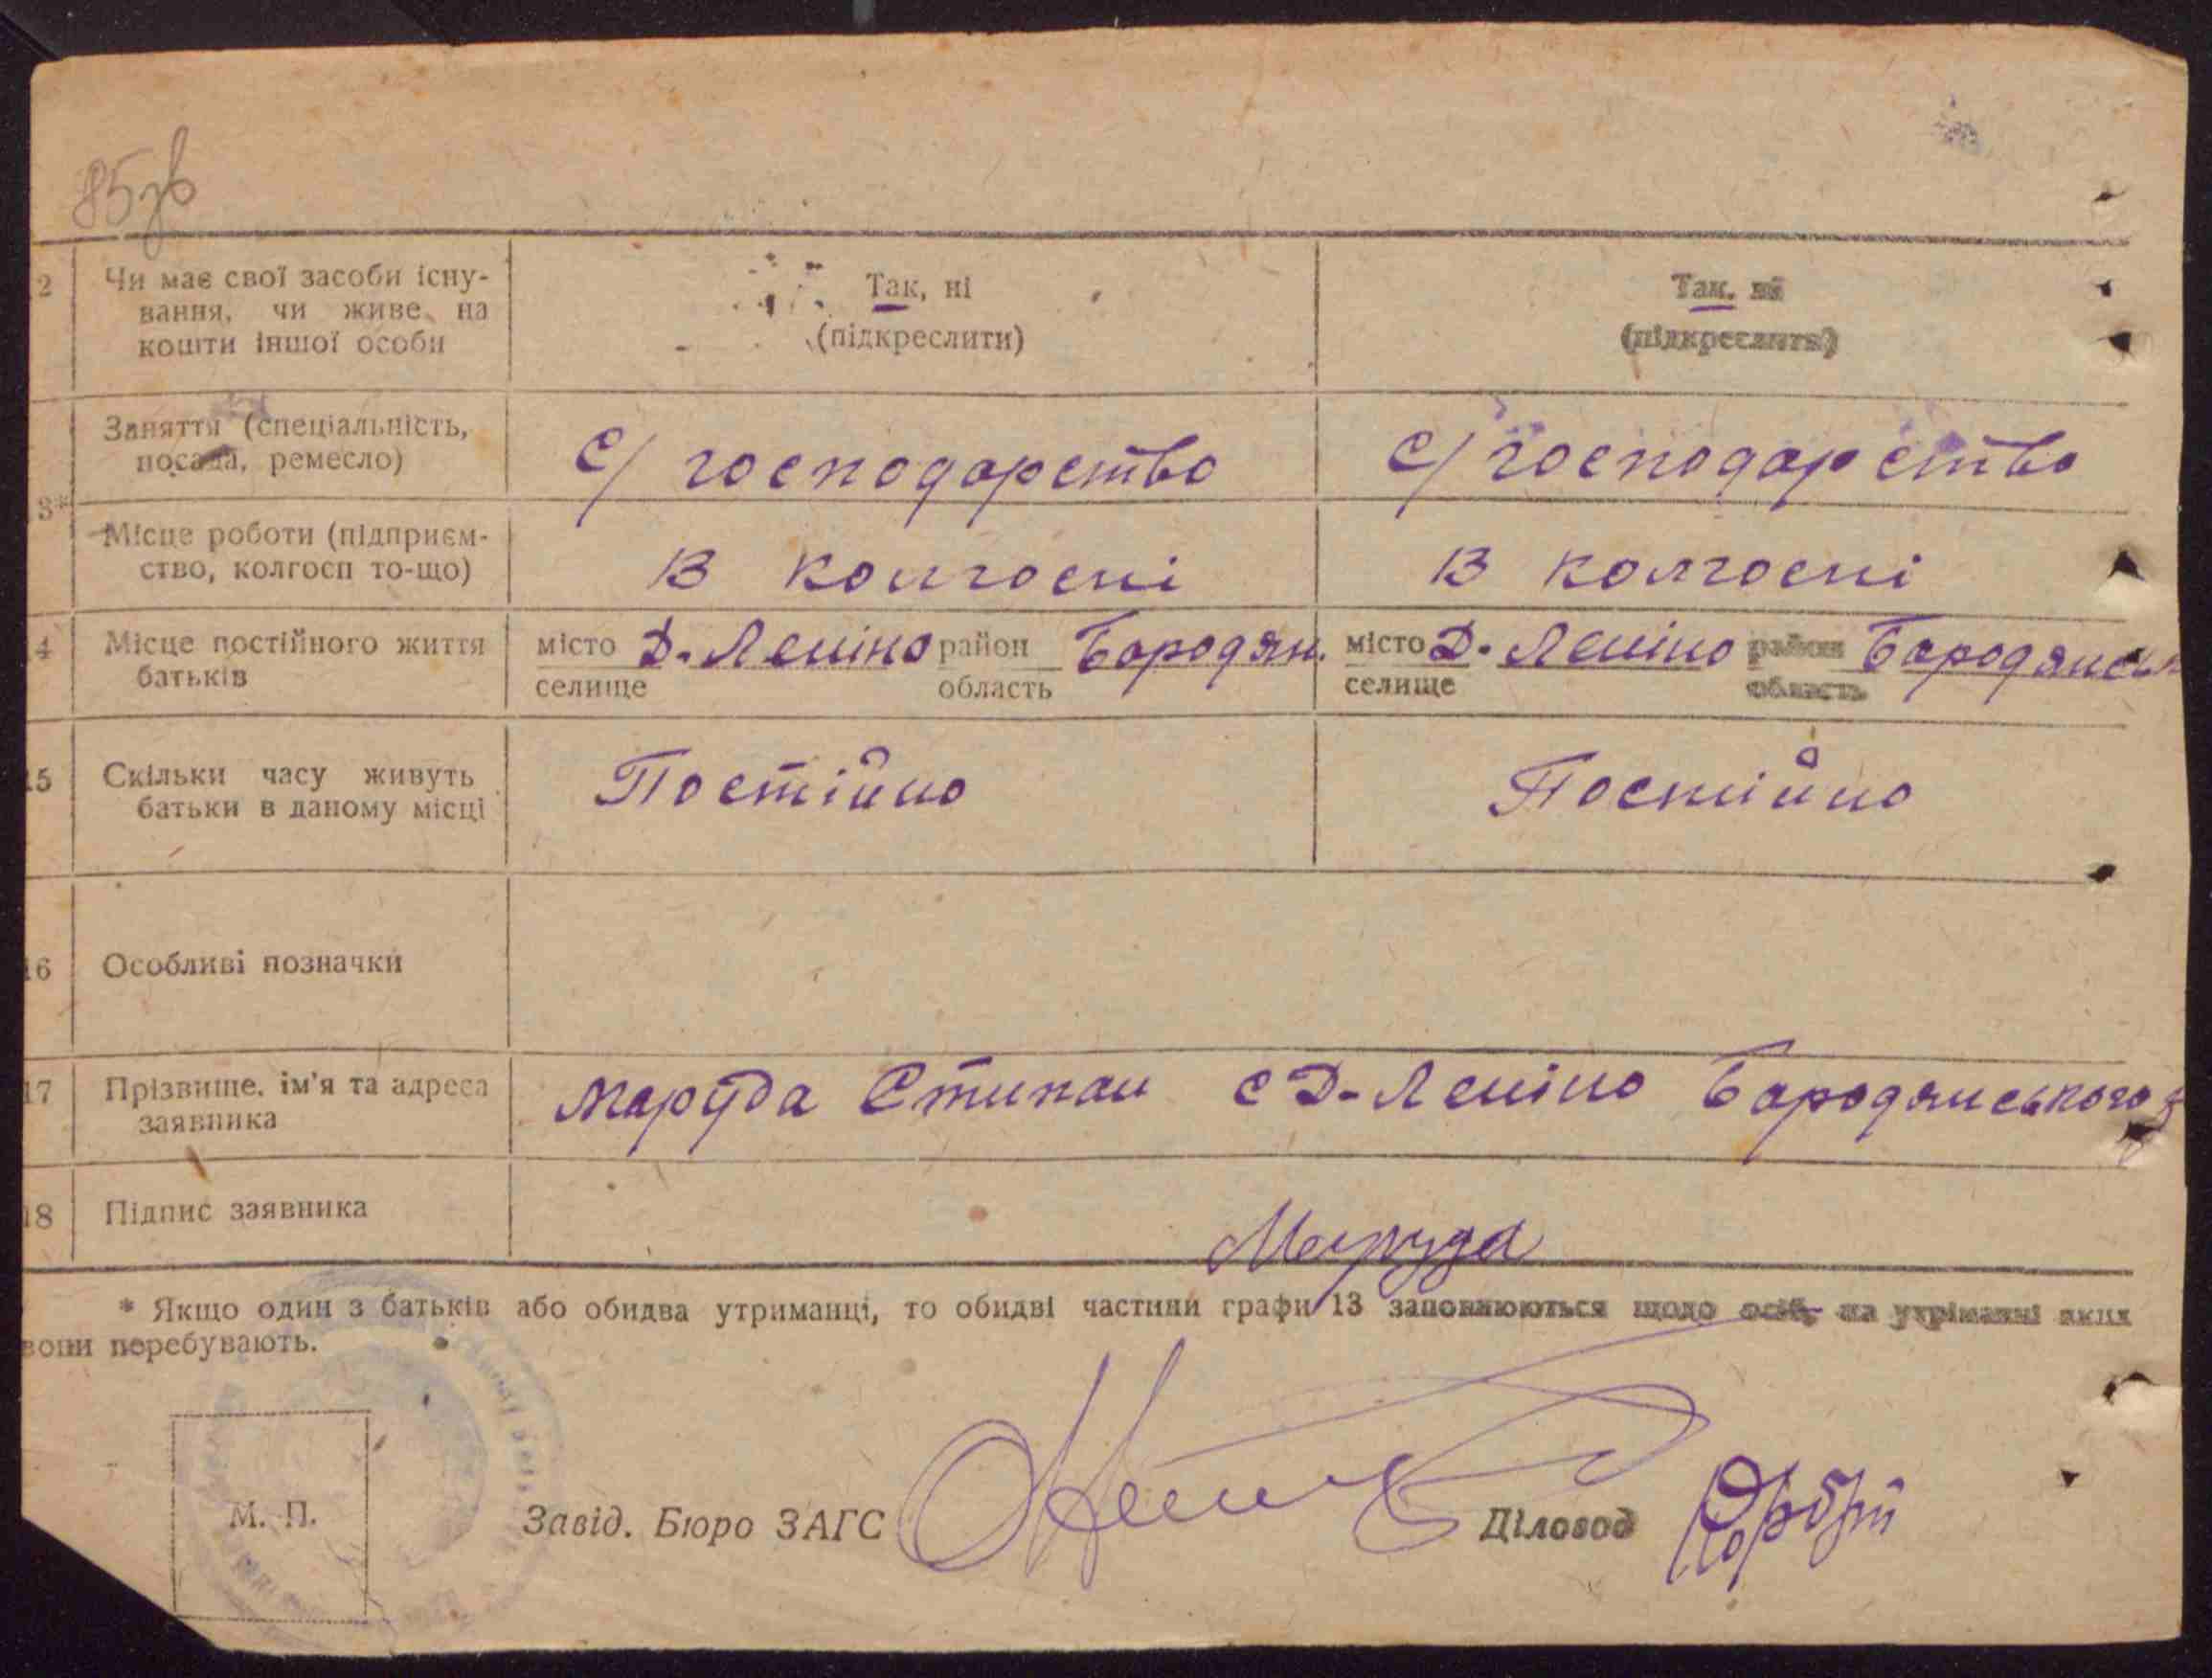 85зв
2 Чи має свої засоби існу-
вання, чи живе на
кошти іншої особи
Так, ні
(підкреслити)
Так, ні
(підкреслити)
3*
Заняття (спеціальність,
посада, ремесло)
С/господарство
С/господарство
Місце роботи (підприєм-
ство, колгосп то-що)
В колгоспі
В колгоспі
4 Місце постійного життя
батьків
місто Д-Леніно район Бородян.
селище область
місто Д-Леніно район Бородянськ
селище область
15 Скільки часу живуть
батьки в даному місці
Постійно
Постійно
16 Особливі позначки
17 Прізвище, ім'я та адреса
заявника
Маруда Стипан с Д-Леніно Бородянського
18 Підпис заявника
Маруда
* Якщо один з батьків або обидва утриманці, то обидві частини графи 13 заповнюються щодо осіб, на утріманні яких
вони перебувають.
М. П.
Завід. Бюро ЗАГС
Діловод